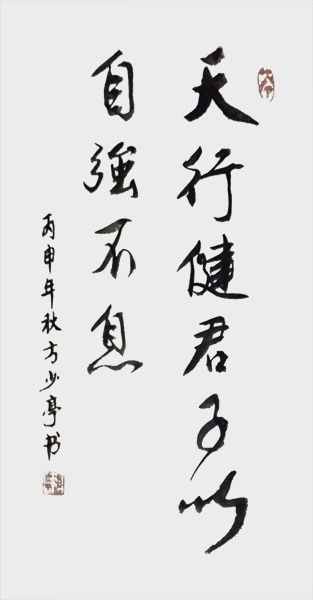 天行健君子以
自強不息
丙申年秋方少亭书